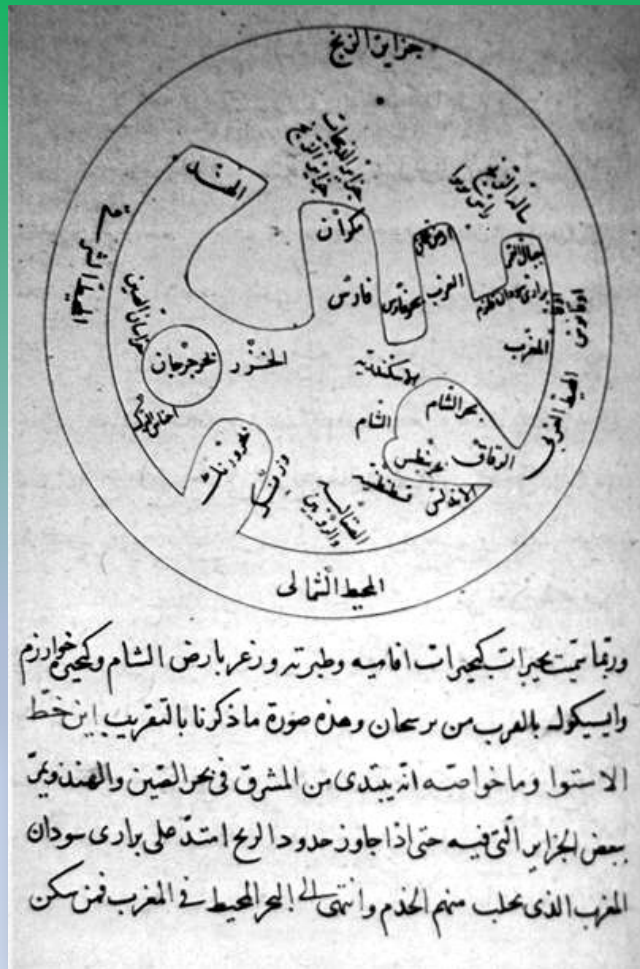 جزاير الزنج
جزاير الديبجات
جزاير الزبج
سفالة الزنج
الهند
مكران
جبال القمر
العرب
فارس
بحر فارس
قلزم
المغرب
المحيط الغربي
الصين
بحر جرجان
الخزر
الاسكندرية
بحر الشام
الشام
الزقاق
بحر ورنك
بحر نيطس
قسطنطينية
الصقالبة
المحيط الشمالى
وربما سميت بحيرات كبحيرات افاميه وطبرية و زغر بارض الشام وكبحيرة خوارزم
وايسيكول بالقرب من برسخان وهذه صورة ما ذكرنا بالتقريب اين خط
الاستوا وما خواصه انه يبتدى من المشرق فى بحر الصين والهند ويمر
ببعض الجزاير التى فيه حتى اذا جاوز حدود الزنج امتد على برارى سودان
المغرب الذى يجلب منهم الخدم وانتهى الى البحر المحيط فى المغرب فمن سكن